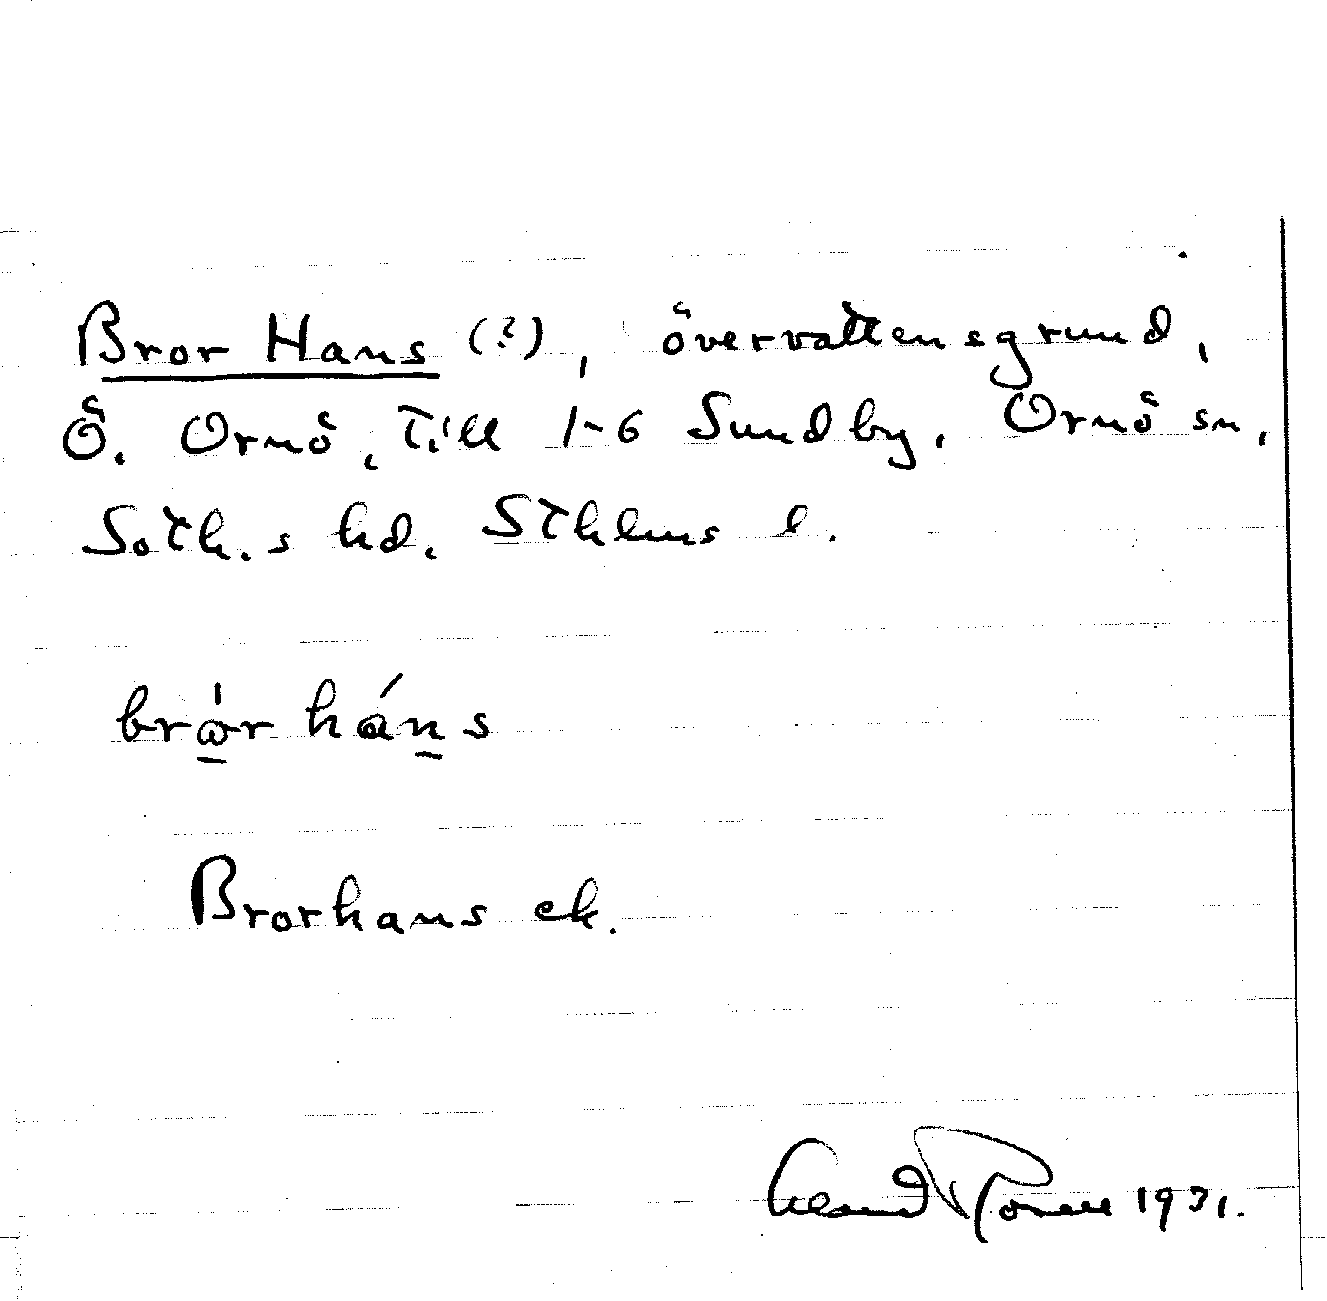 Bror Hans (?), övervattensgrund,
Ö. Ornö, till 1-6 Sundby. Ornö sn,
Soth.s hd. Sthlms l.
brȧ̱r háṉs
Brorhans ek.
1931.